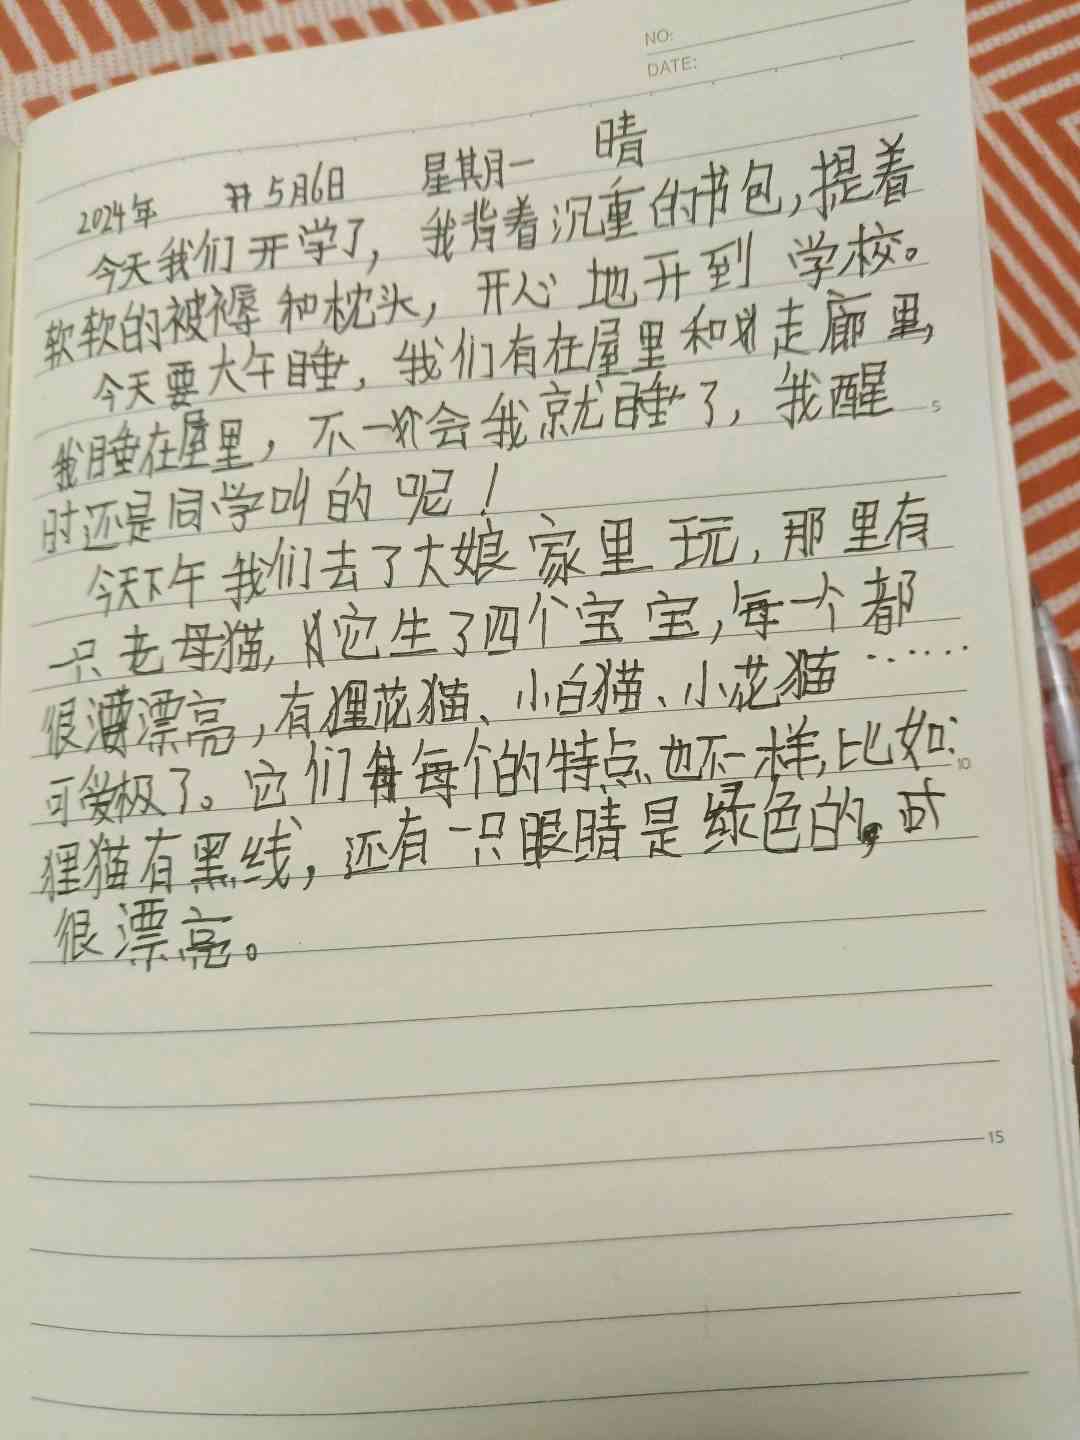 NO:
DATE:
2024年 5月6日 星期一 晴
今天我们开学了，我背着沉重的书包，提着
软软的被褥和枕头，开心地开到学校。
今天要大午睡，我们有在屋里和走廊里，
我睡在屋里，不一会我就睡了，我醒
时还是同学叫的呢！
今天下午我们去了大娘家里玩，那里有
一只老母猫，它生了四个宝宝，每一个都
很漂亮，有狸花猫、小白猫、小花猫……
可爱极了。它们每个的特点也不一样，比如：
狸猫有黑线，还有一只眼睛是绿色的，
很漂亮。
5
10
15